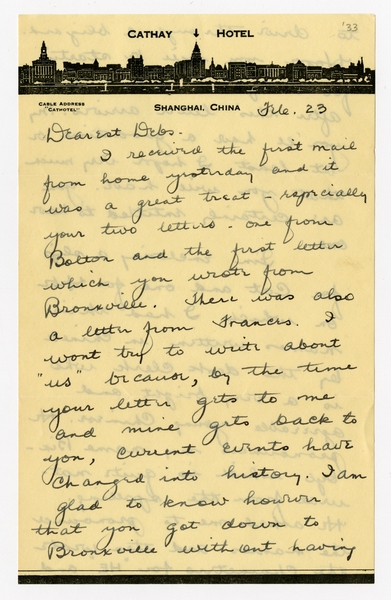 '33
CATHAY HOTEL
CABLE ADDRESS
"CATHOTEL"
SHANGHAI, CHINA
Feb. 23
Dearest Debs.
I received the first mail
from home yesterday and it
was a great treat - especially
your two letters - one from
Bolton and the first letter
which you wrote from
Bronxville. There was also
a letter from Frances. I
wont try to write about
"us" because, by the time
your letter gets to me
and mine gets back to
you, current events have
changed into history. I am
glad to know however
that you got down to
Bronxville without having